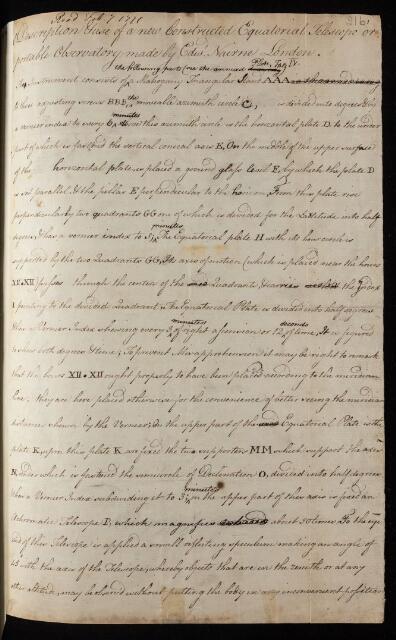 Read Feb. 7. 1771
216
A Description & use of a new Constructed Equatorial Telescope or
portable Observatory made by Edwd. Nairne London.
the following parts (see the annexed Plate, Tab. IV.
This Instrument consists of a Mahogany Triangular Stand AAA
to three adjusting screws BBB the moveable azimuth circle C, is divided into degrees & by
a vernier index to every 6 minutes on this azimuth circle is the horizontal plate D to the under
part of which is fastened the vertical conical axis E, On the middle of the upper surface
of the horizontal plate is placed a ground glass level F, by which the plate D
is set parallel, & the pillar E perpendicular to the horizon, From this plate rise
perpendicularly two quadrants GG one of which is divided for the Latitude into half
degrees, & has a vernier index to minutes The Equatorial plate H with its hour circle is
supported by the two Quadrants GG, The axis of motion (which is placed near the hours
XII. XII) passes through the centre of the Quadrants & carries the Index
I pointing to the divided Quadrant; The Equatorial Plate is divided into half degrees
& has a Vernier Index shewing every 3 minutes of right ascension or 12 seconds of time, It is figured
to shew both degrees & time; To prevent Misapprehension it may be right to remark
that the hours XII. XII ought properly to have been placed according to the meridian
line; they are here placed otherwise for the convenience of better seeing the meridian
distance shewn by the Vernier; On the upper part of the Equatorial Plate is the
plate K, upon this plate K are fixed the two supporters MM which support the axis
N under which is fastened the semicircle of Declination O, divided into half degrees
& has a Vernier Index subdividing it to 3 minutes on the upper part of this axis is fixed an
Achromatic Telescope P, which magnifies about 50 times. To the eye
end of this Telescope is applied a small reflecting speculum making an angle of
45 with the axis of the Telescope, whereby objects that are in the zenith or at any
other altitude, may be observed without putting the body in any inconvenient position